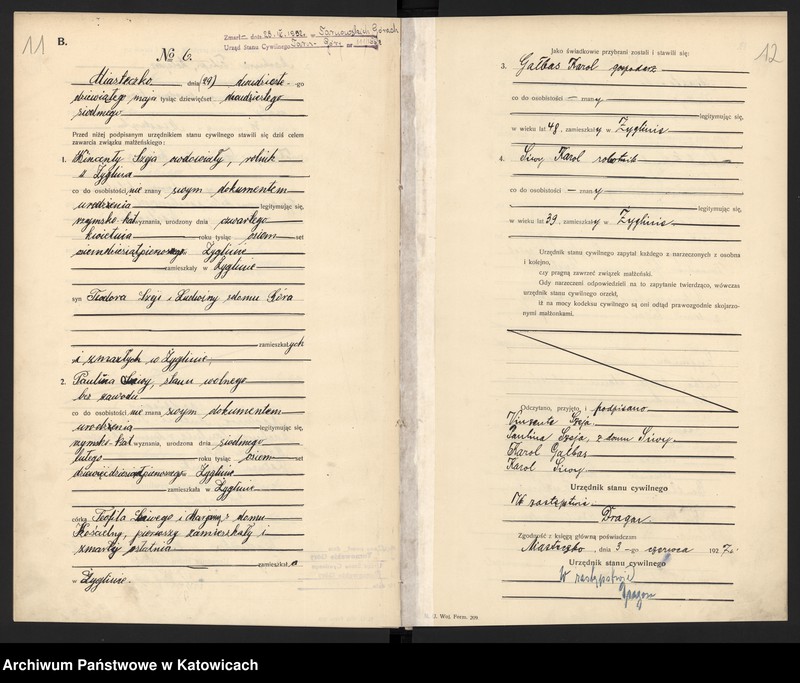 11
B.
Zmarł dnia 23.IX.1952 w Tarnowskich Górach
Urząd Stanu Cywilnego Tarn. Góry nr
No 6.
Miasteczko dnia (29) dwudziesto-go
dziewiątego maja tysiąc dziewięćset dwudziestego
siódmego
Przed niżej podpisanym urzędnikiem stanu cywilnego stawili się dziś celem
zawarcia związku małżeńskiego:
1. Wincenty Szeja nodowiały, rolnik
z Żyglina
co do osobistości, nie znany swym dokumentem
urodzenia legitymując się,
rzymsko kat wyznania, urodzony dnia czwartego
kwietnia roku tysiąc ośiem set
Żyglinie
zamieszkały w Żyglinie
syn Teodora Szeji i Ludwiny zdomu Góra
zamieszkałych
i zmarłych w Żyglinie,
2. Paulina Siwy, stanu wolnego
bez zawodu
co do osobistości nie znana swym dokumentem
urodzenia legitymując się,
rzymsko kat wyznania, urodzona dnia siódmego
lutego roku tysiąc ośiem set
Żyglinie
zamieszkała w Żyglinie
córka Teofila Siwego i z domu
Kościelny, pierwszy zamieszkały i
zmarły ostatnia
zamieszkała
w Żyglinie.
12
Jako świadkowie przybrani zostali i stawili się:
3. Gałbas Karol gospodarz
co do osobistości — znany
legitymując się,
w wieku lat 48, zamieszkały w Żyglinie
4. Siwy Karol robotnik
co do osobistości — znany
legitymując się,
w wieku lat 39, zamieszkały w Żyglinie
Urzędnik stanu cywilnego zapytał każdego z narzeczonych z osobna
i kolejno,
czy pragną zawrzeć związek małżeński.
Gdy narzeczeni odpowiedzieli na to zapytanie twierdząco, wówczas
urzędnik stanu cywilnego orzekł,
iż na mocy kodeksu cywilnego są oni odtąd prawozgodnie skojarzo-
nymi małżonkami.
Odczytano, przyjęto, i podpisano
Vinzenta Szeja
Paulina Szeja, z domu Siwy
Karol Gałbas
Karol Siwy
Urzędnik stanu cywilnego
W zastępstwie
Dragan
Zgodność z księgą główną poświadczam
Miasteczko, dnia 3-go czerwca 1927
Urzędnik stanu cywilnego
W zastępstwie
Dragon
J. Woj. Form. 209
Archiwum Państwowe w Katowicach